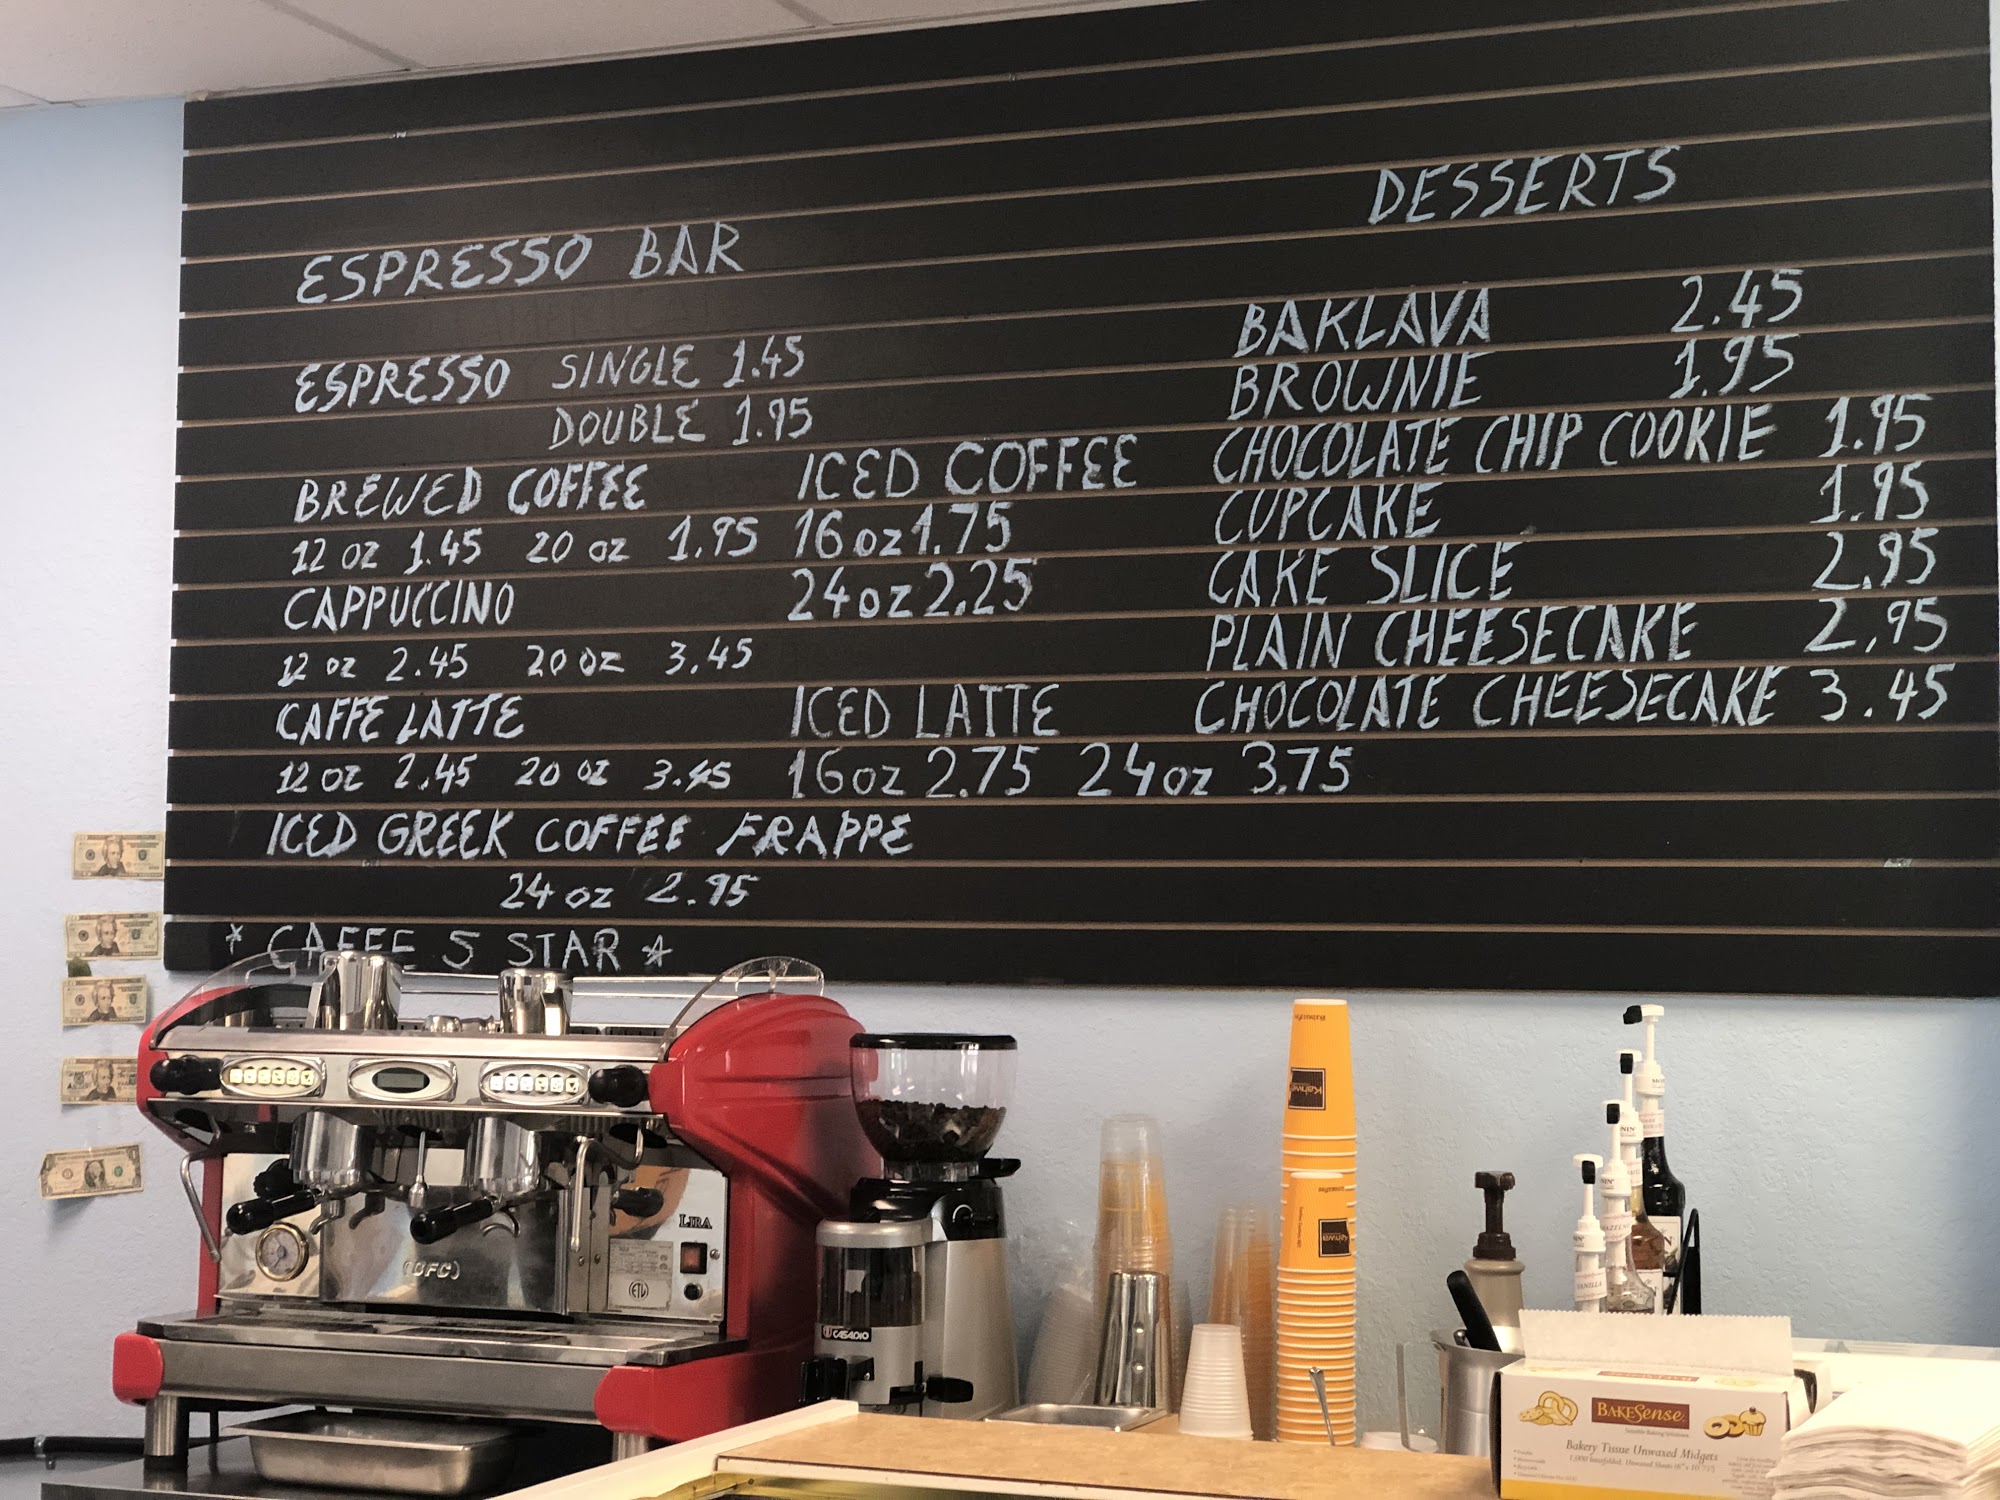 ESPRESSO BAR
ESPRESSO SINGLE 1.45
DOUBLE 1.95
BREWED COFFEE
12 oz 1.45 20 oz 1.95
CAPPUCCINO
12 oz 2.45 20 oz 3.45
CAFFE LATTE
12 oz 2.45 20 oz 3.45
ICED GREEK COFFEE FRAPPE
24 oz 2.95
* CAFFE 5 STAR *
ICED COFFEE
16 oz 1.75
24 oz 2.25
ICED LATTE
16 oz 2.75 24 oz 3.75
DESSERTS
BAKLAVA 2.45
BROWNIE 1.95
CHOCOLATE CHIP COOKIE 1.95
CUPCAKE 1.95
CAKE SLICE 2.95
PLAIN CHEESECAKE 2.95
CHOCOLATE CHEESECAKE 3.45
LIRA
(BFC)
ETL
CASADIO
Kahwa
Kahwa
VANILLA
BAKESENSE
Bakery Tissue Unwaxed Midgets